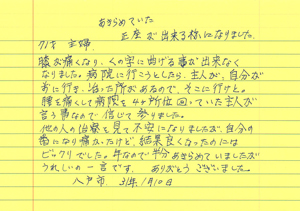 あきらめていた
正座が出来る様になりました。
71才 主婦
膝が痛くなり、くの字に曲げる事が出来なく
なりました。病院に行こうとしたら、主人が、自分が
前に行き、治った所があるので、そこに行けと。
腰を痛くして病院を4ヶ所位回っていた主人が
言う事なので、信じて参りました。
他の人の治療を見て不安になりましたが、自分の
番になり痛かったけど、結果良くなったのには
ビックリでした。年なので半分あきらめていましたが
うれしいの一言です。ありがとうございました。
八戸市 31年1月10日